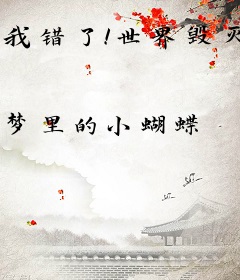 我错了!世界毁灭
梦里的小蝴蝶